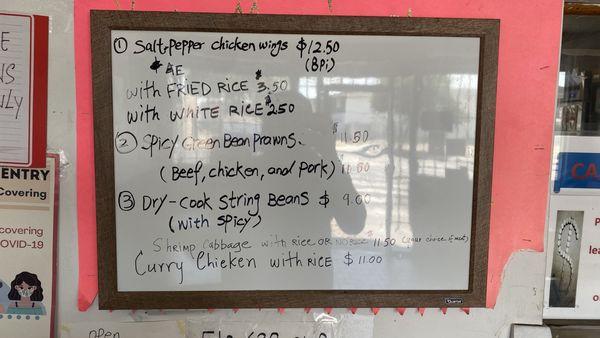 ① Salt-Pepper chicken wings $12.50
(8pi)
with FRIED RICE $3.50
with WHITE RICE $2.50
② Spicy Green Bean prawns. $11.50
(Beef, chicken, and pork)
③ Dry-cook String Beans $ 9.00
(with spicy)
Shrimp Cabbage with rice OR NOODLE 11.50 (your choice of meat)
Curry Chicken with RICE $11.00
Quartet
ENTRY
Covering
covering
OVID-19
open
CA